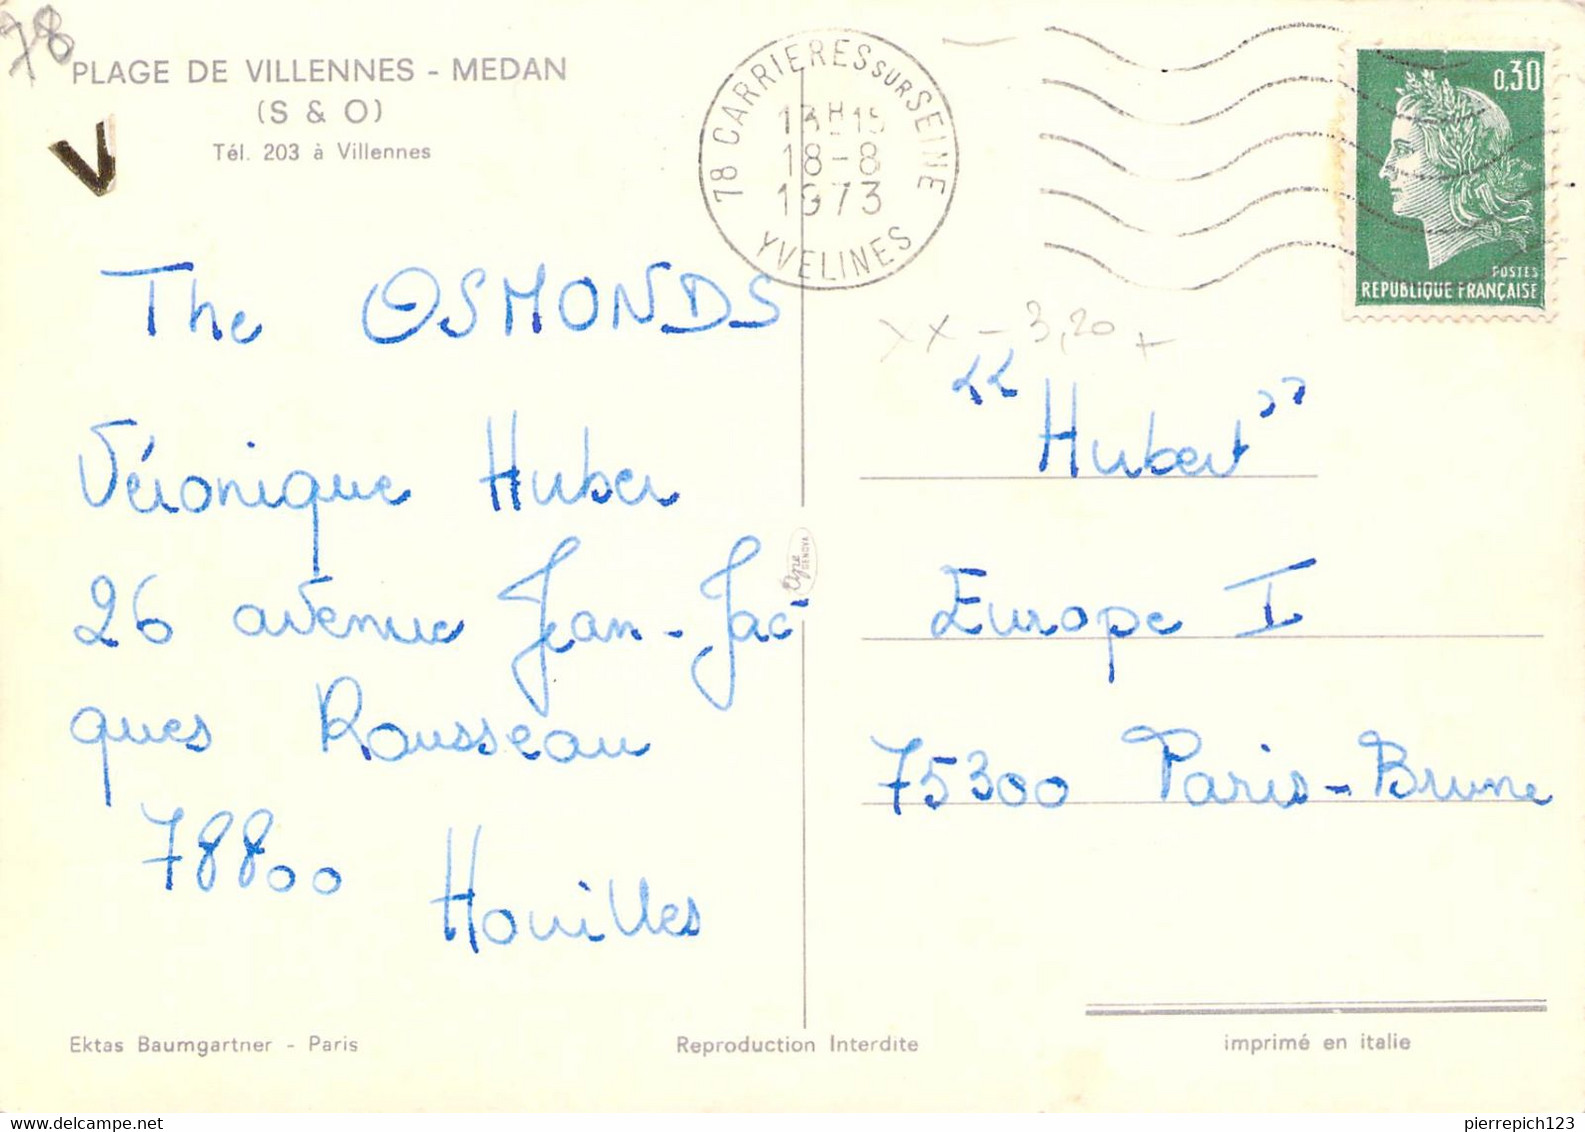 78
PLAGE DE VILLENNES - MEDAN
(S & O)
Tél. 203 à Villennes
78 CARRIERES SUR SEINE
13H15
18-8
1973
YVELINES
0,30
POSTES
REPUBLIQUE FRANÇAISE
XX - 3,20 +
The OSMONDS
Véronique Huber
26 avenue Jean-Jac-
ques Rousseau
78800
Houilles
"Hubert"
Europe I
75300 Paris-Brune
GENOVA
Ektas Baumgartner - Paris
Reproduction Interdite
imprimé en italie
pierrepich123